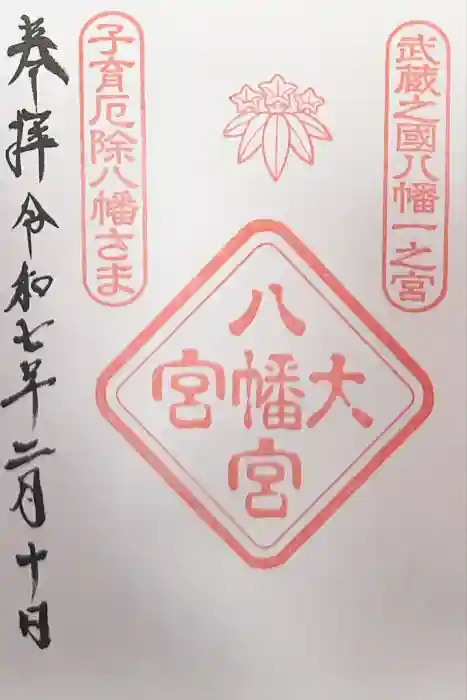 武蔵之國八幡一之宮
大
八幡宮
宮
子育厄除八幡さま
奉拝令和七年二月十日